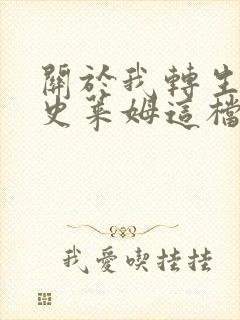 關於我轉生
史萊姆這檔
我愛喫挂挂